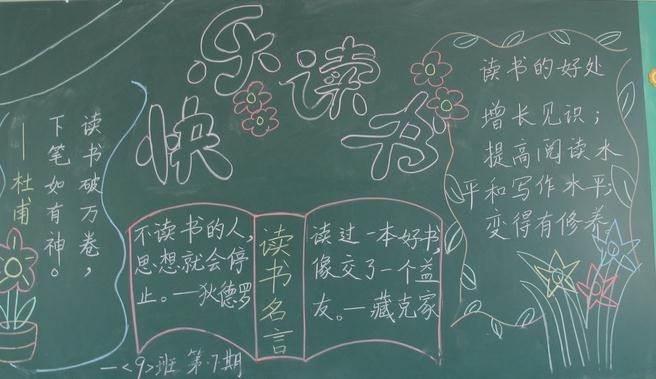 快乐读书
读书破万卷，
下笔如有神。
——杜甫
不读书的人，
思想就会停
止。—狄德罗
读书名言
读过一本好书，
像交了一个益
友。—藏克家
读书的好处
增长见识；
提高阅读水
平和写作水平；
变得有修养
一<9>班 第·7期